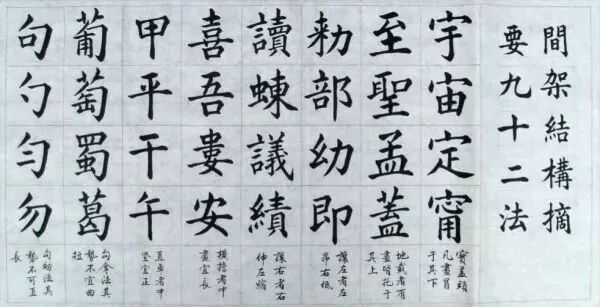 間架結構摘
要九十二法
宇宙定甯
寳盖頭
凡畫冒
于其下
至聖孟蓋
地載者有
畫皆托于
其上
勅部幼即
讓左者左
昂右低
讀蝀議績
讓右者右
伸左縮
喜吾婁安
橫擔者中
畫宜長
甲平干午
直卓者中
竖宜正
葡萄蜀葛
勾拿法其
勢不宜曲
短
句勺勻勿
勾幼法其
勢不可直
長